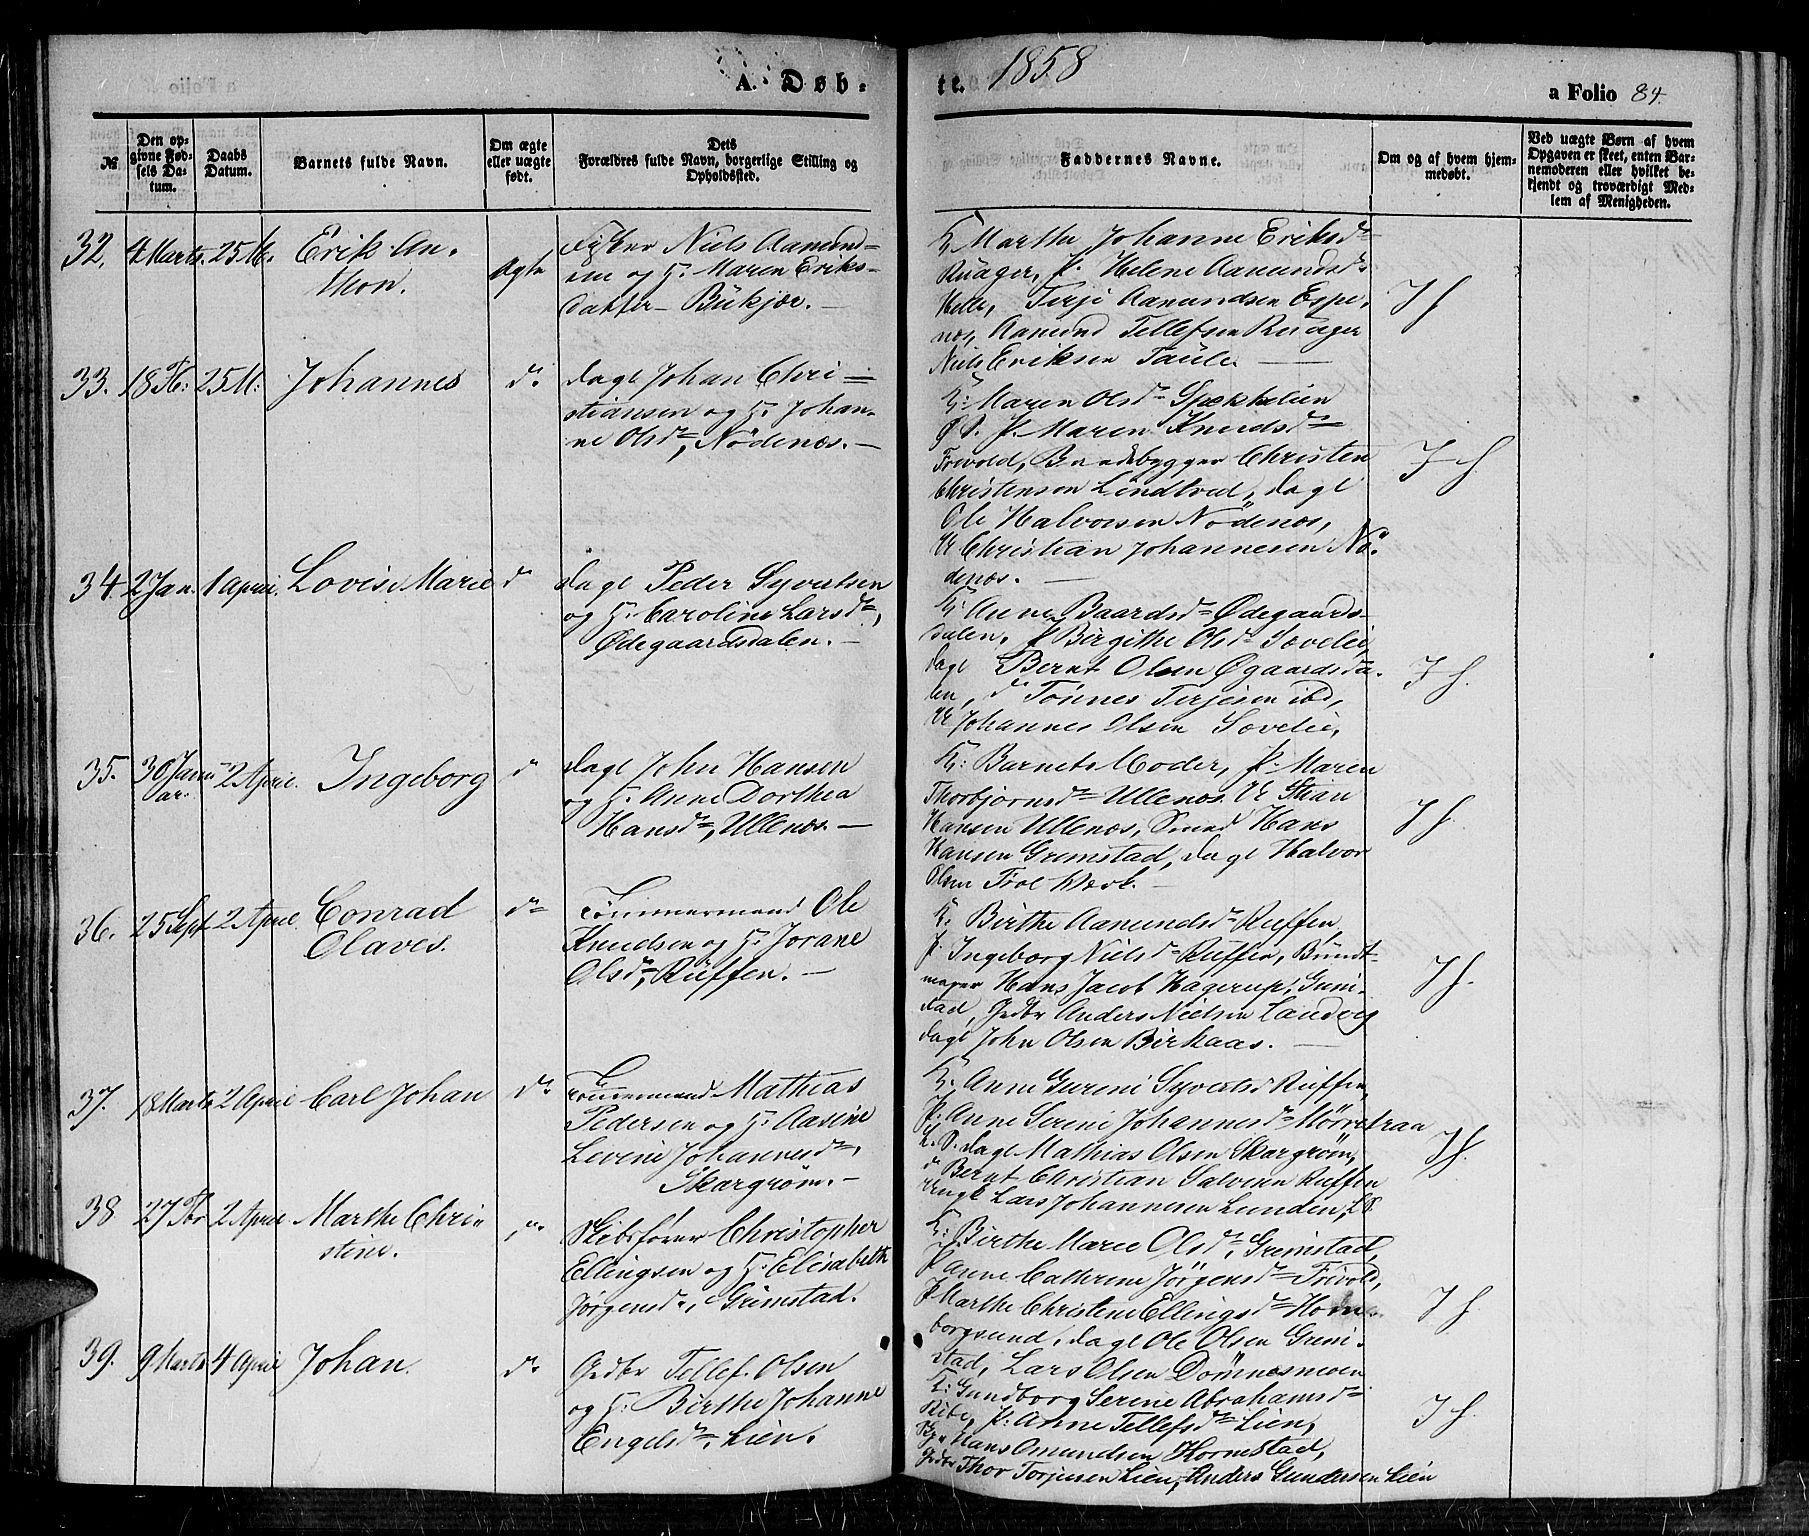 A. Døb-
te. 1858
a Folio 84.
№
Den op-
givne Fød-
sels Da-
tum.
Daabs
Datum.
Barnets fulde Navn.
Om ægte
eller uægte
født.
Dets
Forældres fulde Navn, borgerlige Stilling og
Opholdssted.
Faddernes Navne.
Om og af hvem hjem-
medøbt.
Ved uægte Børn af hvem
Opgaven er skeet, enten Bar-
nemoderen eller hvilket be-
kjendt og troværdigt Med-
lem af Menigheden.
32. 4 Marts. 25 M. Erik An-
thon.
Ægte
Niels Aamund-
sen og H. Maren Eriks-
datter Bükjær.
K Marthe Johanne Eriksd
Ruager, P. Helene Aamundsd
Helle, Terje Aamundsen Espe-
næs, Aamund Tellefsen Ruager
Niels Eriksen Taule.
J f
33. 18 Fb: 25 M: Johannes d.
dagl Johan Chri-
stiansen og H. Johan-
ne Olsd, Nödenæs.
K: Maren Olsd
P. Maren Knudsd
Frivold, Baadebygger Christen
Christensen Lindtved, dagl
Ole Halvorsen Nödenæs,
U Christian Johannesen Nö-
denæs.
J f
34. 2 Jan. 1 April. Lovise Marie d
dagl Peder Syvertsen
og H. Caroline Larsd,
Ødegaardsdalen.
K: Anne Baardsd Ødegaards-
dalen, P Birgithe Olsd Sævelie,
dagl Bernt Olsen Øgaardsda-
len, d Tönnes Terjesen ibd,
U Johannes Olsen Sævelie,
J f.
35. 30 Janu
ar. 2 April. Ingeborg d
dagl John Hansen
og H. Anne Dorthea
Hansd, Ullenæs.
K: Barnets Moder, P. Maren
Thorbjørnsd Ullenæs. U Stian
Hansen Ullenæs, Smed Hans
Hansen Grimstad, dagl Halvor
Olsen Frol Værk.
J f.
36. 25 Sept. 2 April. Conrad
Olaves. d
Tömmermand Ole
Knudsen og H. Jorane
Olsd, Rüffen.
K. Birthe Aamundsd Rüffen,
P. Ingeborg Nielsd Rüffen, Bundt-
mager Hans Jacob Hagerup, Grim-
stad, Gedbr Anders Nielsen Landvig
dagl John Olsen Birkaas.
J f.
37. 18 Marts 2 April Carl Johan d.
Tömmermand Mathias
Pedersen og H. Aasine
Levine Johannesd,
Skargrøm.
K. Anne Gurine Syvertsd Ruffen,
P. Anne Serine Johannesd Mörretraa
L. S. dagl Mathias Olsen Skargröm,
d Bernt Christian Salvesen Ruffen
Ungk Lars Johannesen Lunden, L S.
J f.
38 27 Fbr 2 April Marthe Chri-
stine.
Skibsfører Christopher
Ellingsen og H. Elisabeth
Jørgensd, Grimstad.
K: Birthe Marie Olsd, Grimstad,
P Anne Cathrine Jörgensd Frivold,
P Marthe Christine Ellingsd Hom-
borgsund, dagl Ole Olsen Grim-
stad, Lars Olsen Dömmesmoen
J f
39. 9 Marts 4 April Johan. d.
Gedbr Tellef Olsen
og H. Birthe Johanne
Engelsd, Lien.
K: Gundborg Serine Abrahamsd
Ribe, P. Anne Tellefsd Lien,
Hans Omundsen Hornestad,
Gedbr Thor Torjusen Lien, Anders Gundersen Lien
J f.